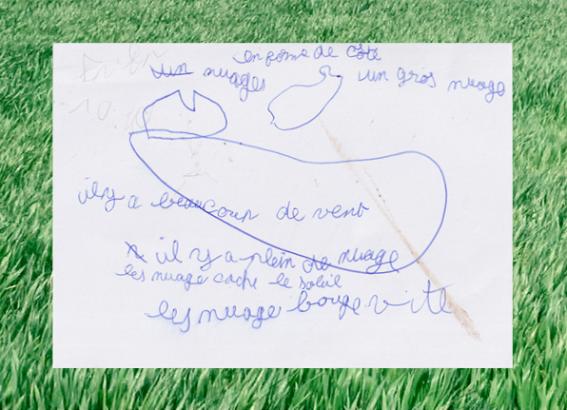 en forme de côte
un nuages
un gros nuage
il y a beaucoup de vent
il y a plein de nuage
les nuage cache le soleil
les nuage bouge vite